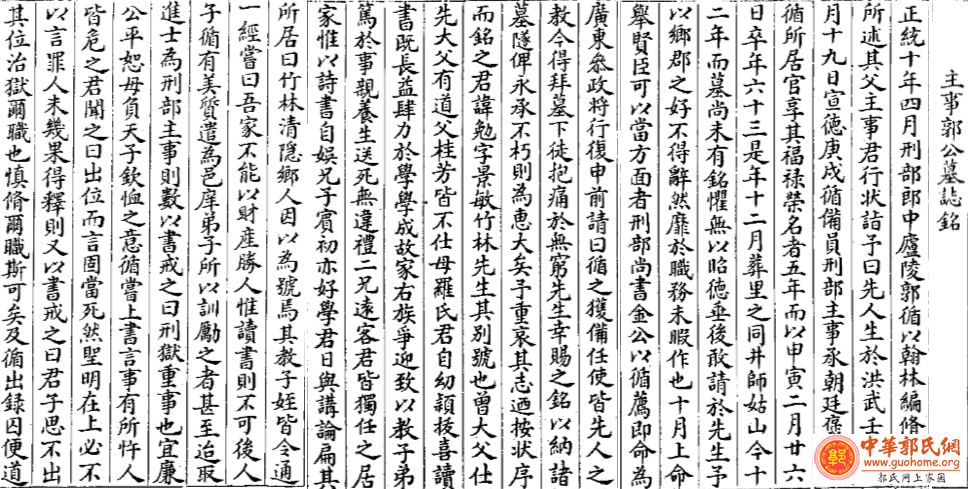 主事郭公墓誌銘
正統十年四月刑部郎中廬陵郭循以翰林編脩
所述其父主事君行状詣予曰先人生於洪武壬
月十九日宣徳庚戌循備員刑部主事承朝廷
循所居官享其福禄榮名者五年而以甲寅二月廿六
日卒年六十三是年十二月葬里之同井師姑山今十
二年而墓尚未有銘懼無以昭徳垂後敢請於先生予
以鄉郡之好不得辭然靡於職務未暇作也十月上命
舉賢臣可以當方面者刑部尚書金公以循薦即命為
廣東叅政将行復申前請曰循之獲備任使皆先人之
教今得拜墓下徒抱痛於無窮先生幸賜之銘以納諸
墓隧俾永承不朽則為惠大矣予重哀其志迺按状序
而銘之君諱勉字景敏竹林先生其别號也曾大父仕
先大父有道父桂芳皆不仕母羅氏君自幼頴拔喜讀
書既長益肆力於學學成故家右族爭迎致以教子弟
篤於事親養生送死無違禮二兄遠客君皆獨任之居
家惟以詩書自娱兄子賓初亦好學君日與講論扁其
所居曰竹林清隠鄉人因以為號焉其教子姪皆令通
一經嘗曰吾家不能以財產勝人惟讀書則不可後人
子循有美質遣為邑庠弟子所以訓勵之者甚至迨取
進士為刑部主事則數以書戒之曰刑獄重事也宜廉
公平恕毋負天子欽恤之意循嘗上書言事有所忤人
皆危之君聞之曰出位而言固當死然聖明在上必不
以言罪人未幾果得釋則又以書戒之曰君子思不出
其位治獄爾職也慎脩爾職斯可矣及循出録囚便道
中華郭氏網
www.guohome.org
郭氏网上家园